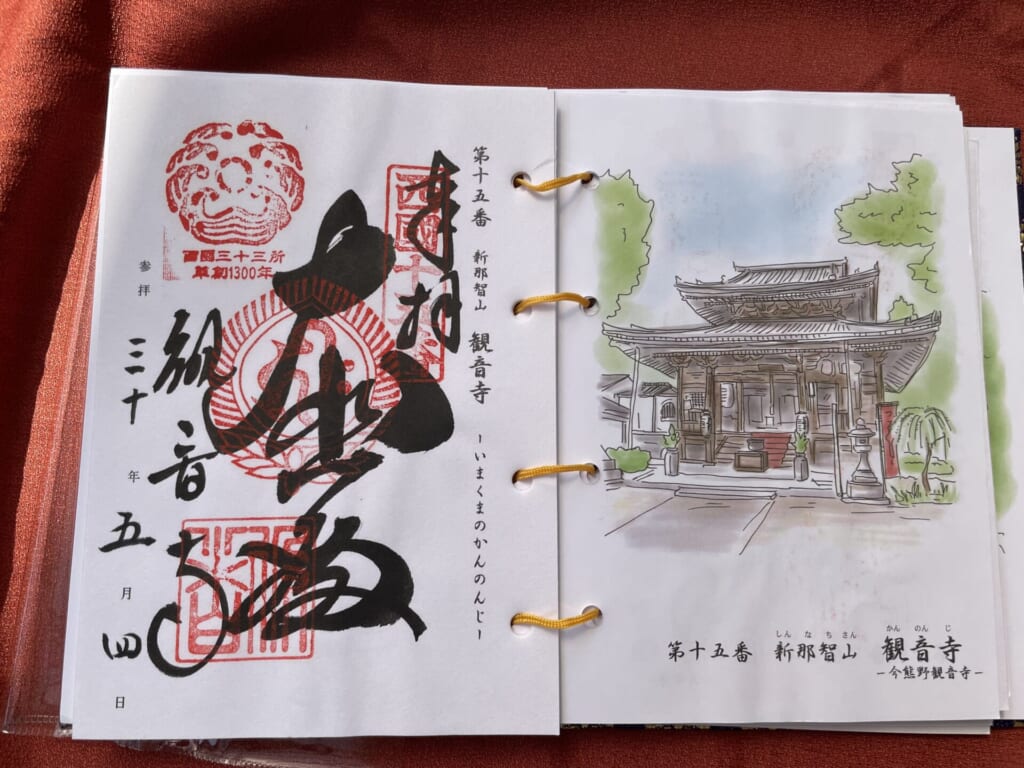 第十五番 新那智山 観音寺 -いまくまのかんのんじ-
奉拝
大悲殿
西國三十三所
草創1300年
観音寺
参拝 三十年五月四日
第十五番 新那智山 観音寺
しんなちさん かんのんじ
-今熊野観音寺-